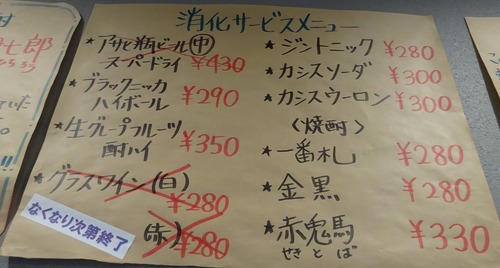 消化サービスメニュー
★アサヒ瓶ビール(中)
スーパードライ ¥430
★ブラックニッカ
ハイボール ¥290
★生グレープフルーツ
酎ハイ ¥350
★グラスワイン(白)
¥280
(赤) ¥280
なくなり次第終了
★ジントニック ¥280
★カシスソーダ ¥300
★カシスウーロン ¥300
〈焼酎〉
★一番札 ¥280
★金黒 ¥280
★赤兎馬 ¥330
せきとば